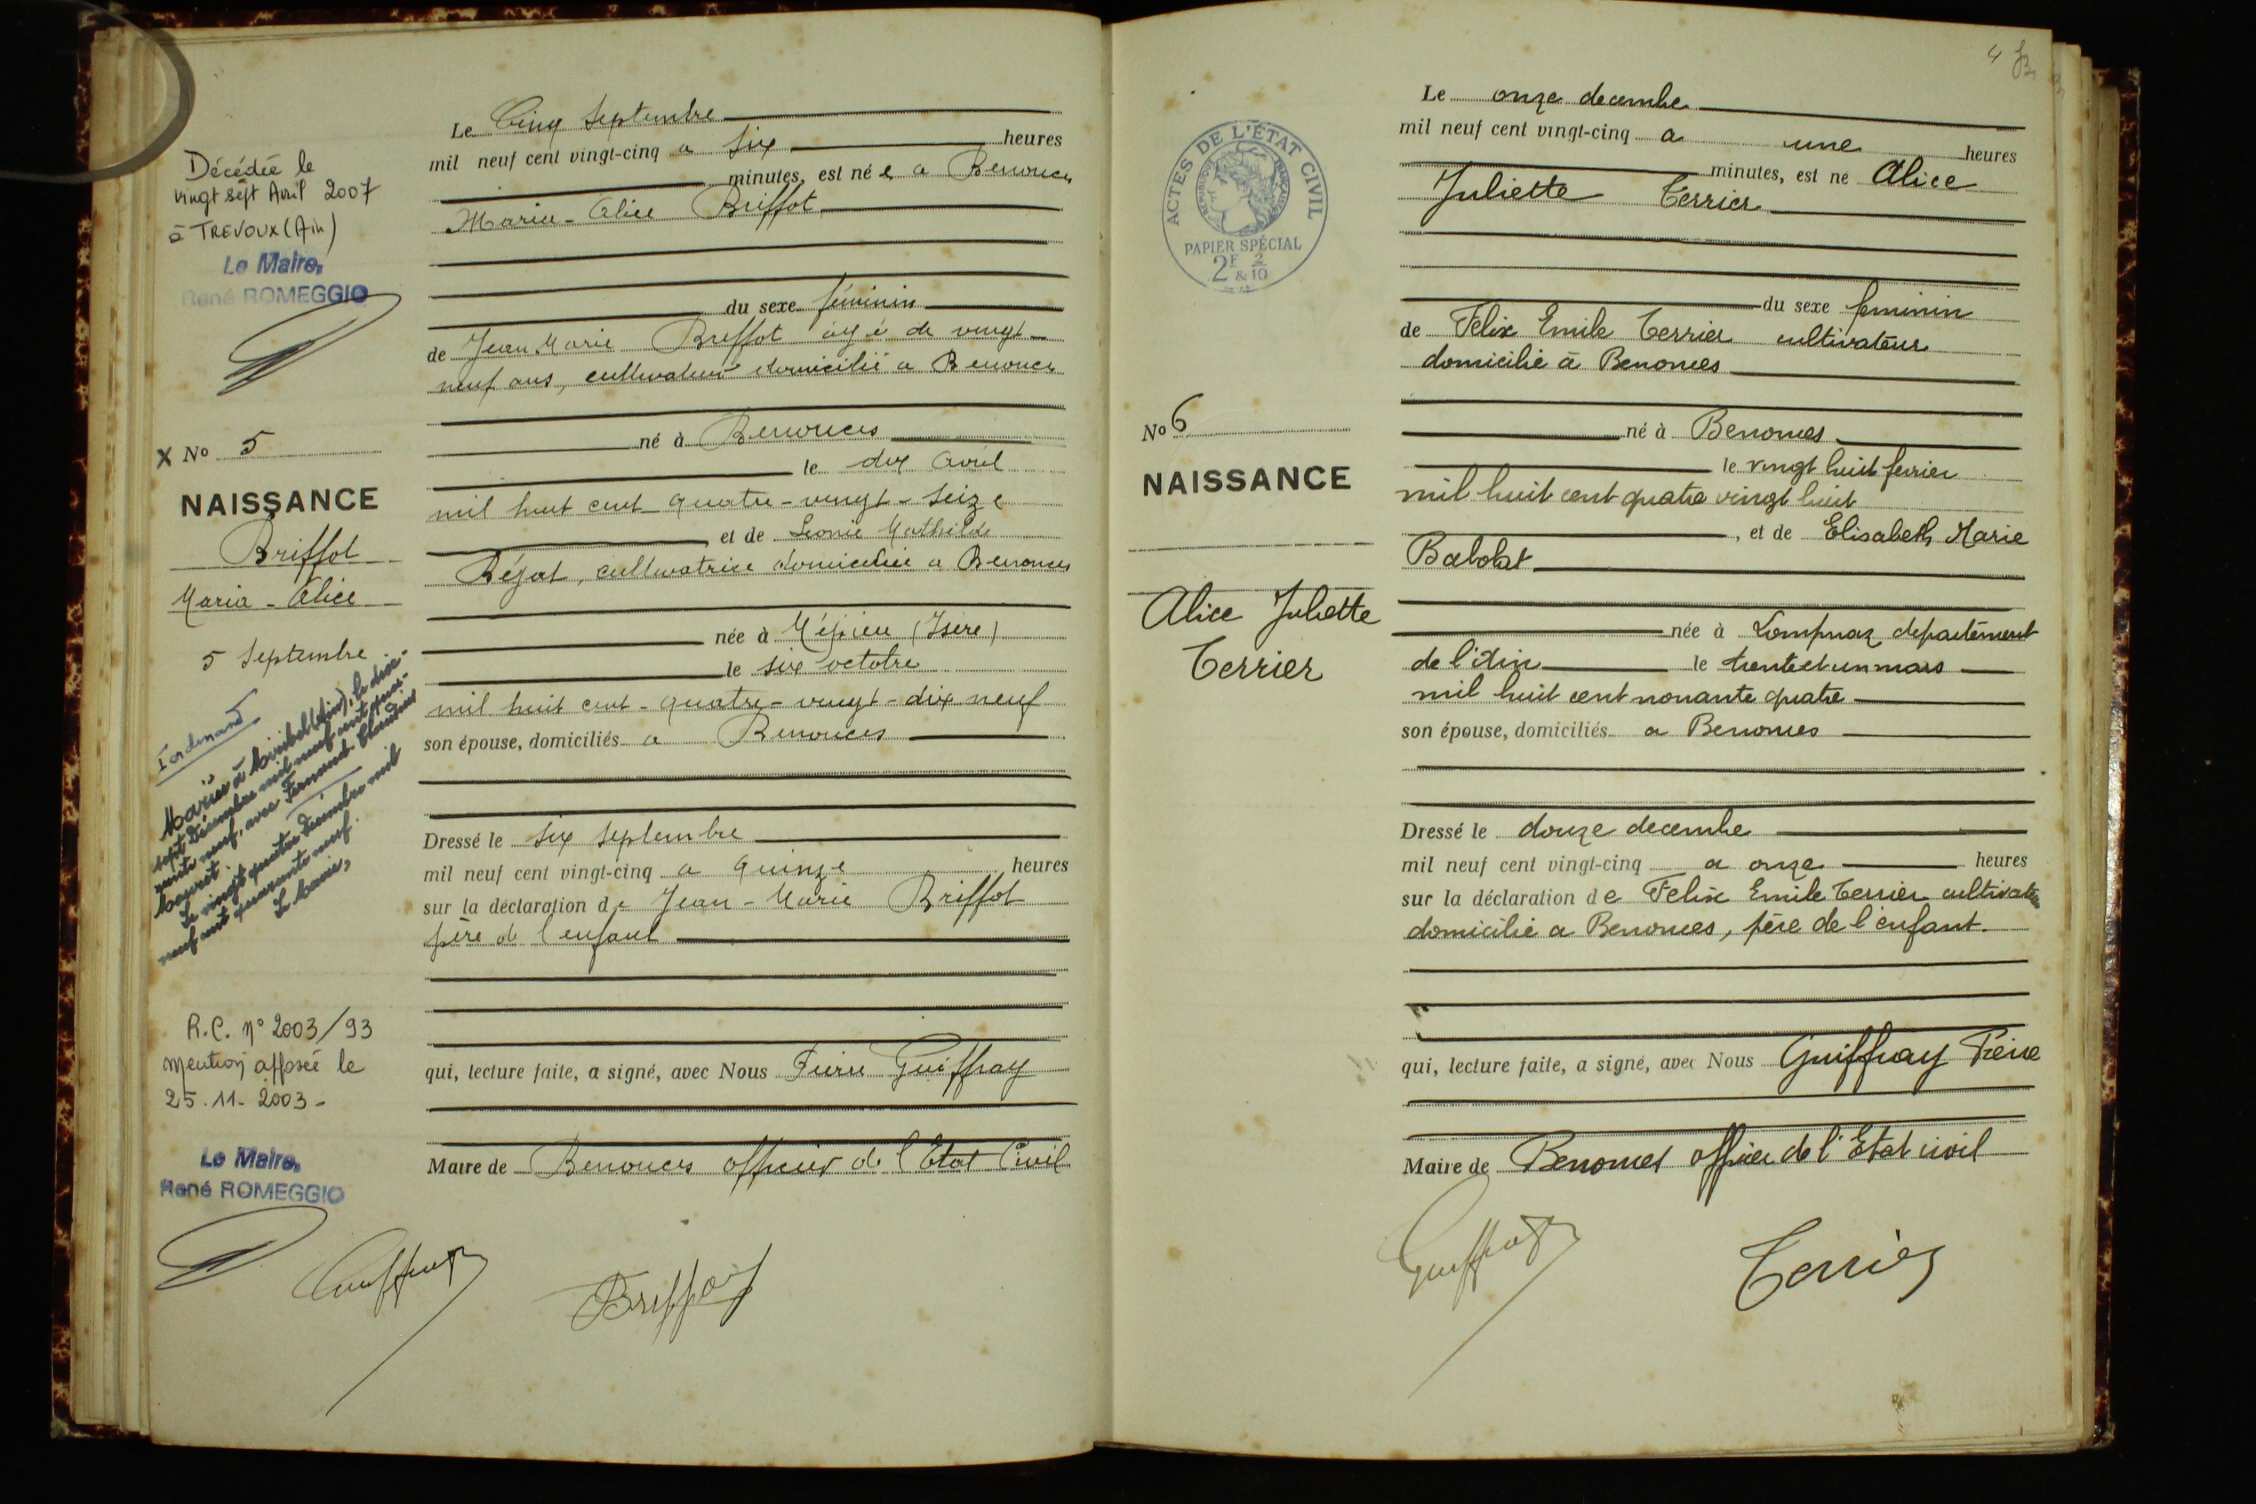 Décédée le
vingt sept Avril 2007
à TREVOUX (Ain)
Le Maire,
René ROMEGGIO
X No 5
NAISSANCE
Briffot
Maria - Alice
5 Septembre
Ferdinand
Mariée à Miribel (Ain), le dix-
sept Décembre mil neuf cent quar-
rante neuf, avec Fernand Claudius
Le vingt quatre Décembre mil
neuf cent quarante neuf.
Le Maire,
R.C. n° 2003/93
mention apposée le
25.11.2003 -
Le Maire,
René ROMEGGIO
Le Cinq Septembre
mil neuf cent vingt-cinq a six heures
minutes, est née a Benonces
Maria - Alice Briffot
du sexe féminin
de Jean Marie Briffot âgé de vingt
neuf ans, cultivateur domicilié a Benonces
né à Benonces
le dix avril
mil huit cent quatre-vingt-seize
et de Leonie Mathilde
Béjat, cultivatrice domiciliée a Benonces
née à Mépieu (Isère)
le six octobre
mil huit cent - quatre - vingt - dix neuf
son épouse, domiciliés a Benonces
Dressé le six septembre
mil neuf cent vingt-cinq a quinze heures
sur la déclaration de Jean - Marie Briffot
père de l'enfant
qui, lecture faite, a signé, avec Nous Pierre Guiffray
Maire de Benonces officier de l'Etat Civil
Guiffray
Briffot
4
ACTES DE L'ÉTAT CIVIL
RÉPUBLIQUE FRANÇAISE
PAPIER SPÉCIAL
2F & 2/10
No 6
NAISSANCE
Alice Juliette
Terrier
Le onze decembre
mil neuf cent vingt-cinq a une heures
minutes, est né Alice
Juliette Terrier
du sexe feminin
de Felix Emile Terrier cultivateur
domicilié à Benonces
né à Benonces
le vingt huit fevrier
mil huit cent quatre vingt huit
, et de Elisabeth Marie
Babolat
née à Lompnaz departement
de l'Ain le trente et un mars
mil huit cent nonante quatre
son épouse, domiciliés a Benonces
Dressé le douze decembre
mil neuf cent vingt-cinq a onze heures
sur la déclaration de Felix Emile Terrier cultivateur
domicilié a Benonces, père de l'enfant.
qui, lecture faite, a signé, avec Nous Guiffray Pierre
Maire de Benonces officier de l'Etat civil
Guiffray
Terrier